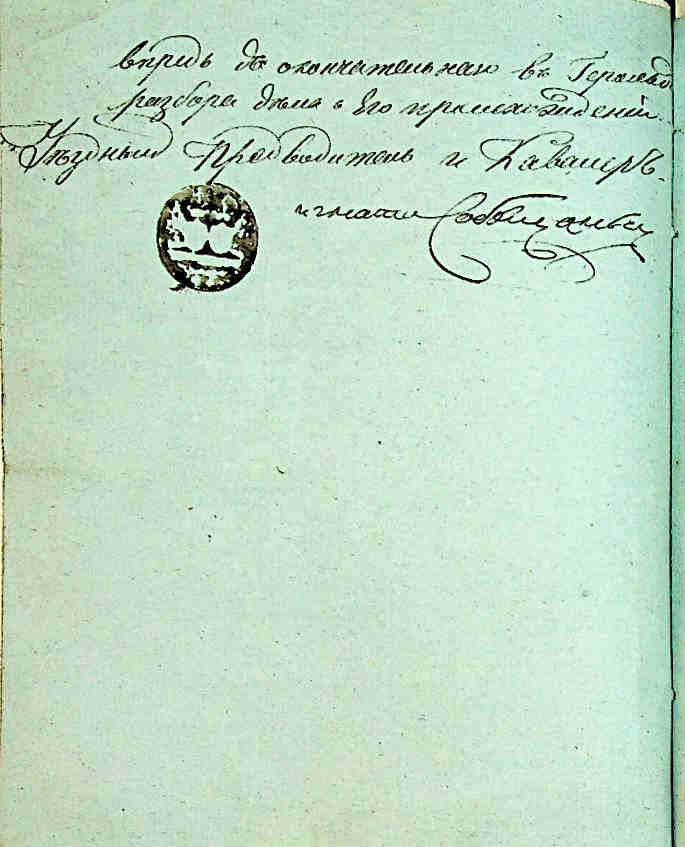 впредь до окончательнаго въ Герольд
разбора дѣла о Его происхожденіи.
Уѣздный Предводитель и Кавалеръ